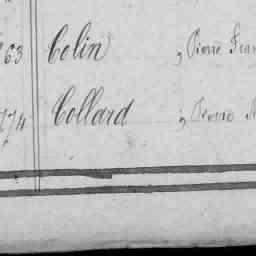 63 Colin , Pierre Fran
174 Collard ; Pierre